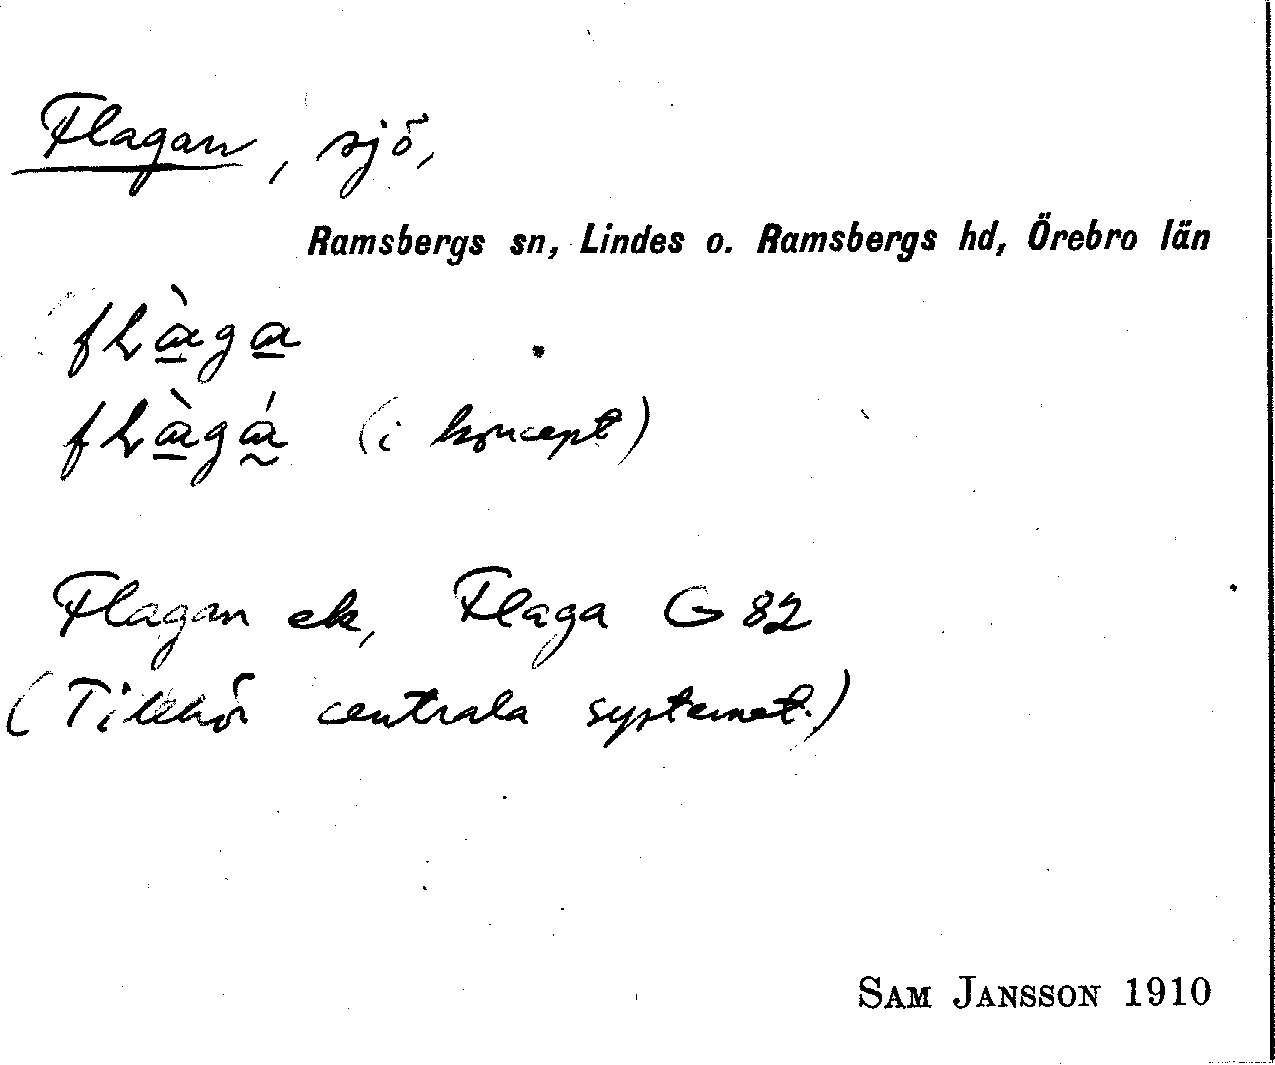 Flagan, sjö,
Ramsbergs sn, Lindes o. Ramsbergs hd, Örebro län
fɬàga
fɬàgá (i koncept)
Flagan ek, Flaga G 82
(Tillhör centrala systemet.)
SAM JANSSON 1910